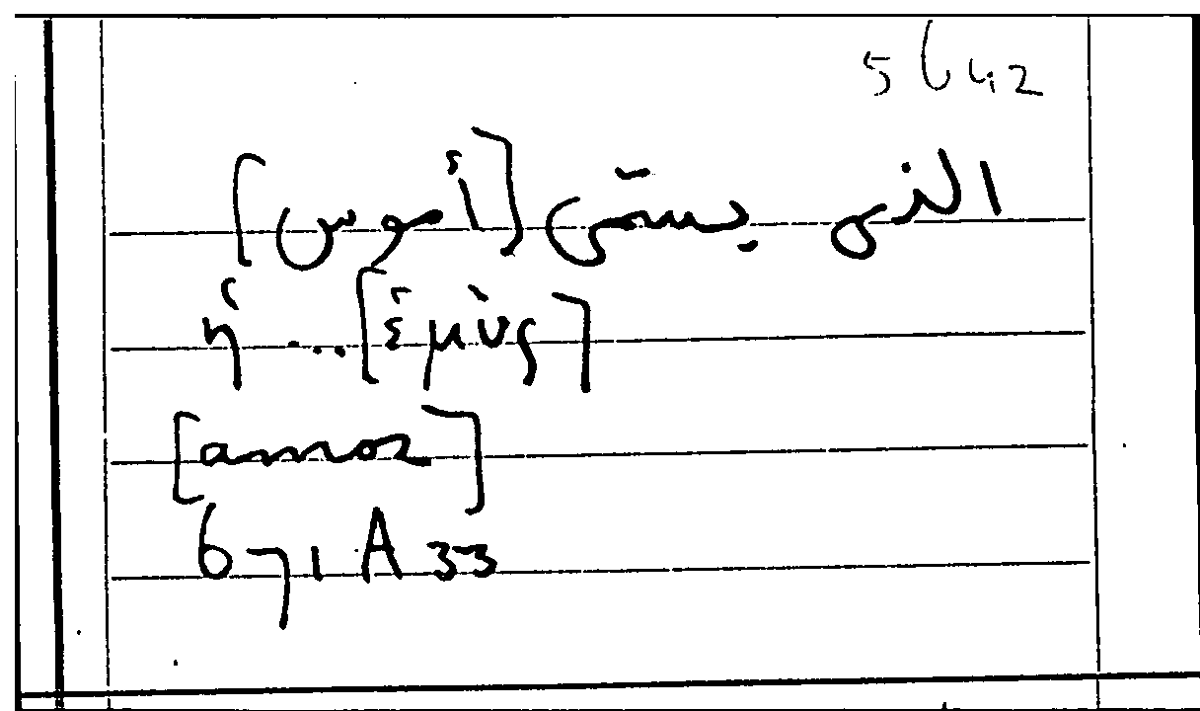 5642
الذى يسمّى [أموس]
ἡ ... [ἐμὺς]
[amos]
671 A 33